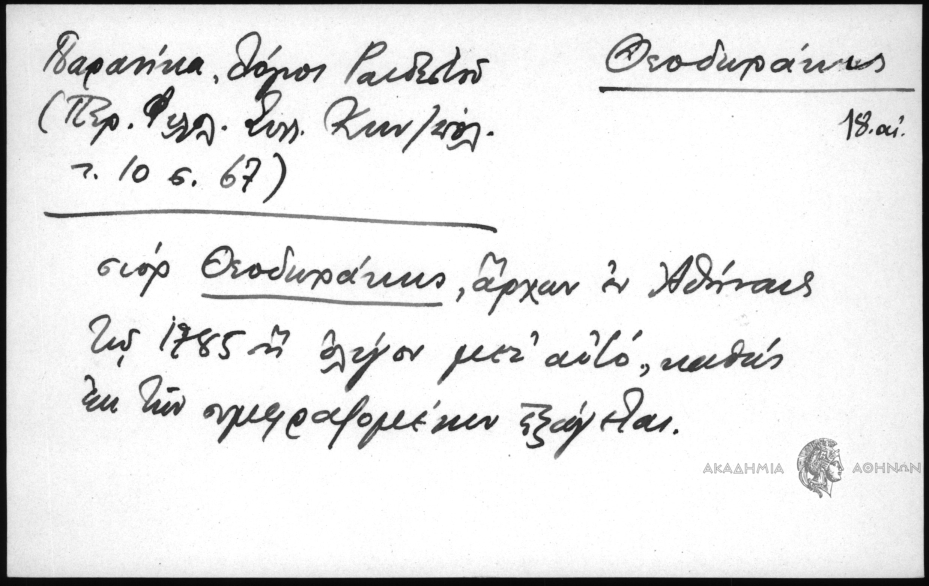 Παρανίκα, λόγιοι Ραιδεστοῦ
Θεοδωράκης
(Περ. Φιλολ. Συλ. Κων/πόλ.
18. αἰ.
τ. 10 σ. 67)
σιόρ Θεοδωράκης, ἄρχων ἐν Ἀθήναις
τῷ 1785 ἢ ὀλίγον μετ' αὐτό, καθώς
ἐκ τῶν συμφραζομένων ἐξάγεται.
ΑΚΑΔΗΜΙΑ ΑΘΗΝΩΝ